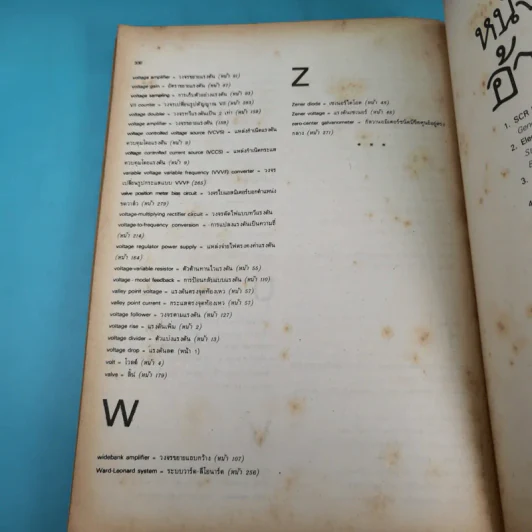 330
voltage amplifier = วงจรขยายแรงดัน (หน้า 91)
voltage gain = อัตราขยายแรงดัน (หน้า 91)
voltage sampling = การเก็บตัวอย่างแรงดัน (หน้า 55)
V/I counter = วงจรเปลี่ยนรูปสัญญาณ V/I (263)
voltage doubler = วงจรทวีแรงดันเป็น 2 เท่า (หน้า 158)
voltage amplifier = วงจรขยายแรงดัน (109)
voltage controlled voltage source (VCVS) = แหล่งกำเนิดแรงดัน
ควบคุมโดยแรงดัน (หน้า 9)
voltage controlled current source (VCCS) = แหล่งกำเนิดกระแส
ควบคุมโดยแรงดัน (หน้า 9)
variable voltage variable frequency (VVVF) converter = วงจร
เปลี่ยนรูปกระแสแบบ VVVF (285)
valve position meter bias circuit = วงจรไบแอสมิเตอร์บอกตำแหน่ง
ของวาล์ว (หน้า 279)
voltage-multiplying rectifier circuit = วงจรตัดไฟแบบทวีแรงดัน
voltage-to-frequency conversion = การแปลงแรงดันเป็นความถี่
(หน้า 216)
voltage regulator power supply = แหล่งจ่ายไฟตรงคงค่าแรงดัน
(หน้า 164)
voltage-variable resistor = ตัวต้านทานไวแรงดัน (หน้า 55)
voltage - model feedback = การป้อนกลับแบบแรงดัน (หน้า 110)
valley point voltage = แรงดันตรงจุดท้องเหว (หน้า 57)
valley point current = กระแสตรงจุดท้องเหว (หน้า 57)
voltage follower = วงจรตามแรงดัน (หน้า 127)
voltage rise = แรงดันเพิ่ม (หน้า 2)
voltage divider = ตัวแบ่งแรงดัน (หน้า 13)
voltage drop = แรงดันลด (หน้า 1)
volt = โวลต์ (หน้า 4)
valve = ลิ้น (หน้า 179)
W
wideband amplifier = วงจรขยายแถบกว้าง (หน้า 107)
Ward-Leonard system = ระบบวาร์ด-ลีโอนาร์ด (หน้า 256)
Z
Zener diode = เซนเนอร์ไดโอด (หน้า 46)
Zener voltage = แรงดันเซนเนอร์ (หน้า 46)
zero-center galvanometer = กัลวานอมิเตอร์ชนิดมีขีดศูนย์อยู่ตรง
กลาง (หน้า 271)
* * *
1. SCR
2. Ele
3.